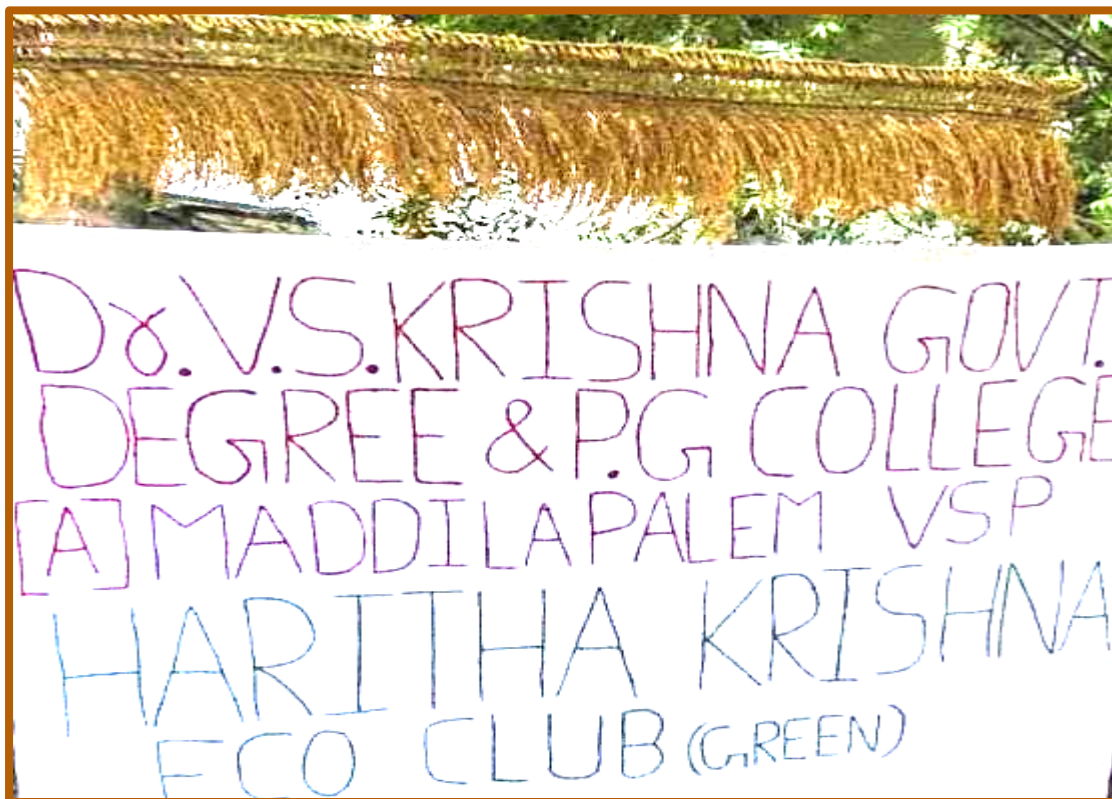 Dr.V.S.KRISHNA GOVT.
DEGREE & P.G COLLEGE
[A] MADDILAPALEM VSP
HARITHA KRISHNA
ECO CLUB (GREEN)